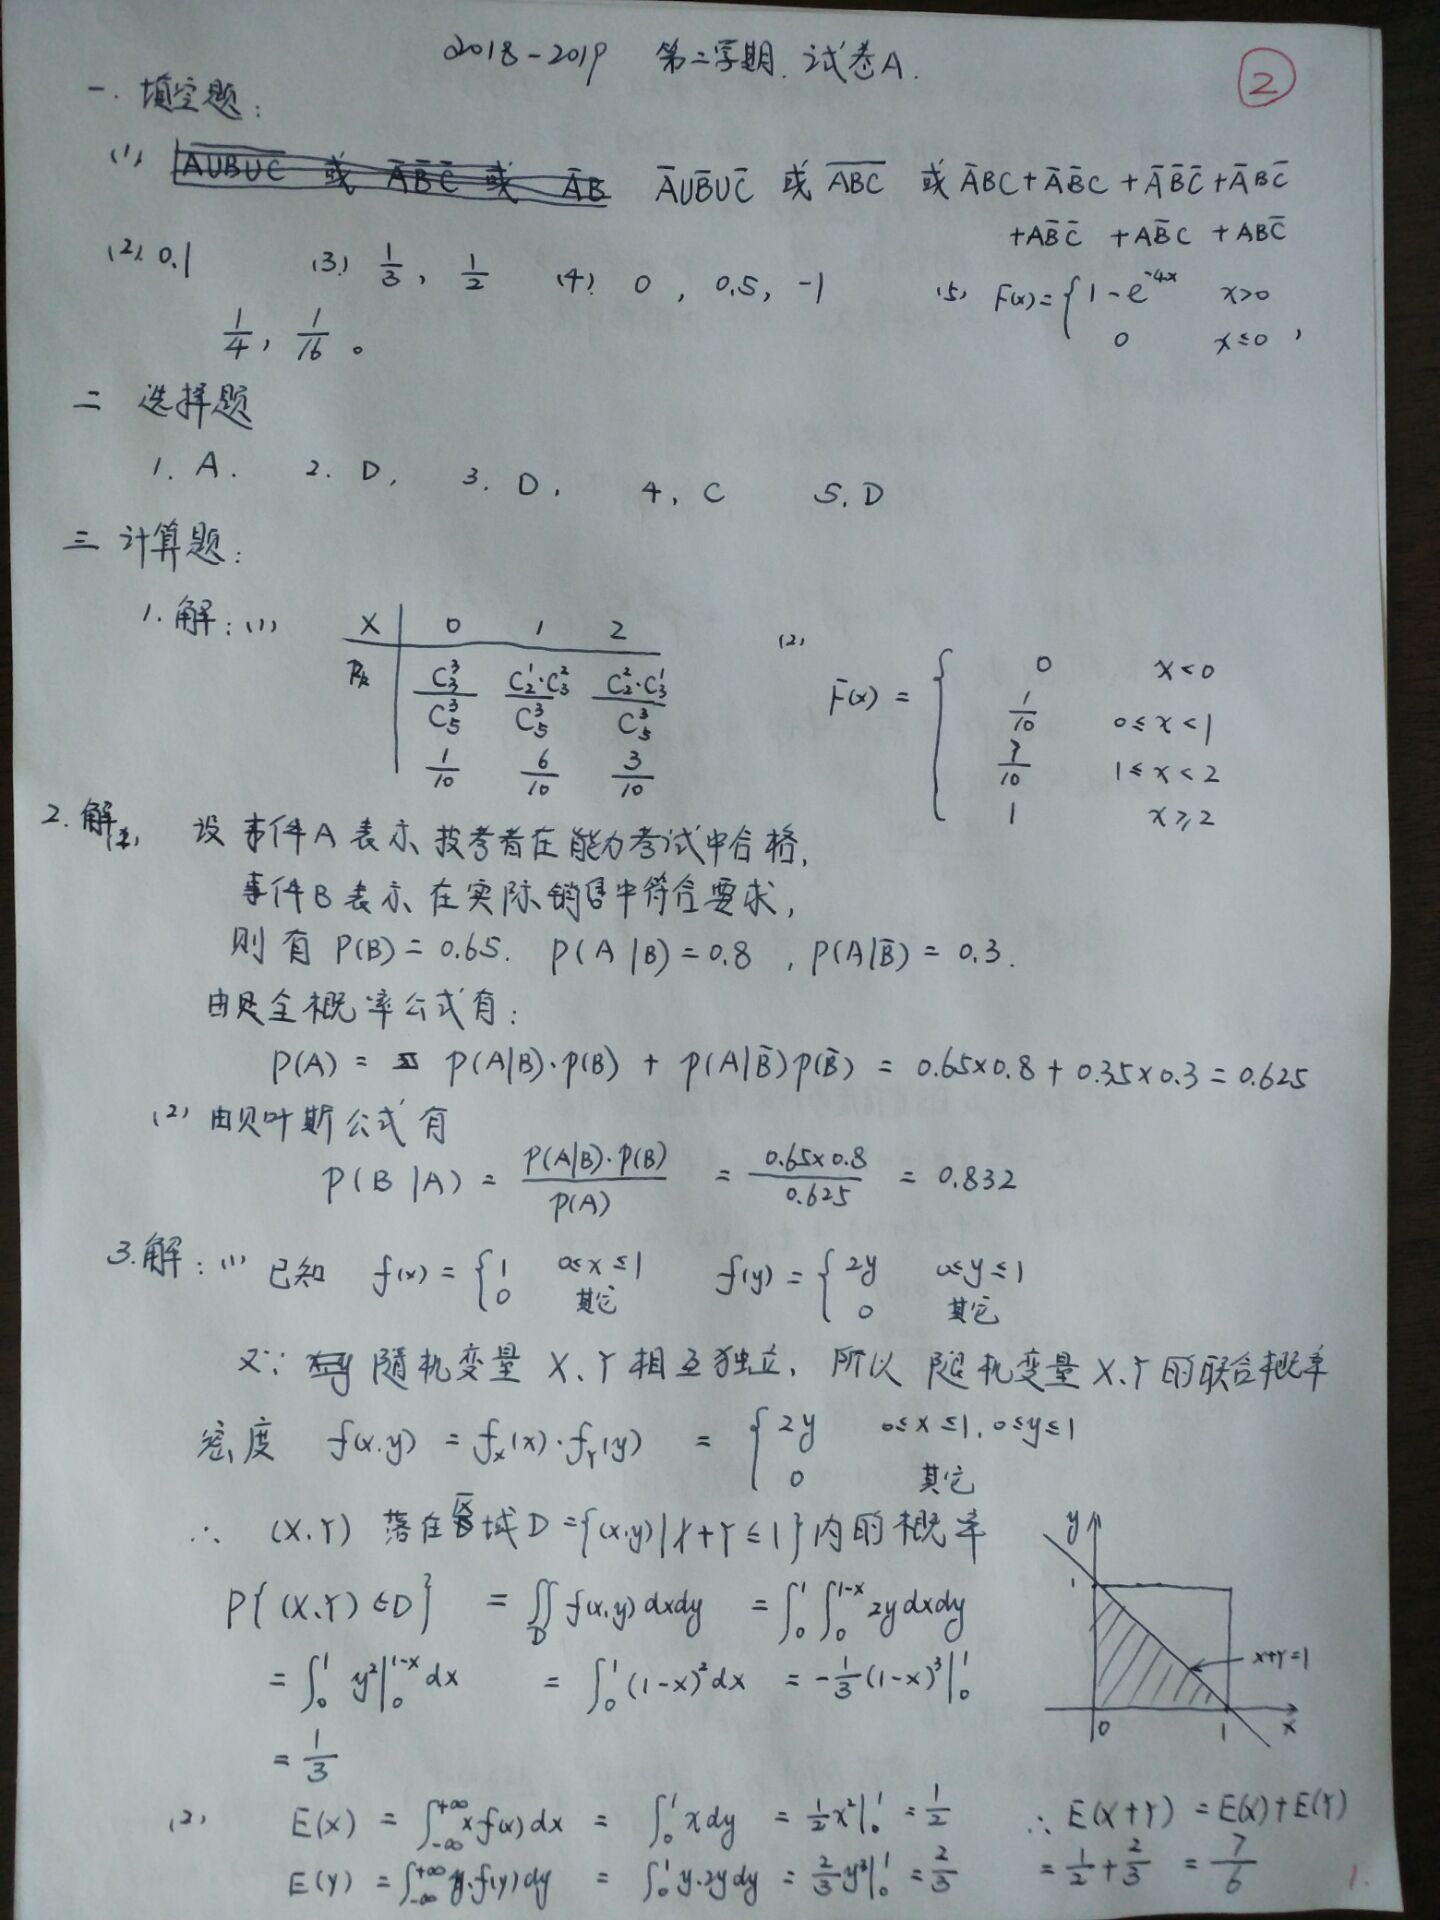 2018-2019 第二学期. 试卷A.
②
一. 填空题:
(1) A̅∪B̅∪C̅ 或 \overline{ABC} 或 A̅BC+A̅B̅C+A̅B̅C̅+A̅BC̅
+AB̅C̅ +AB̅C +ABC̅
(2) 0.1 (3) 1/3, 1/2 (4) 0, 0.5, -1 (5) F(x)={1-e^{-4x} x>0
0 x≤0,
1/4, 1/16。
二 选择题
1. A. 2. D, 3. D, 4, C 5. D
三 计算题:
1. 解: (1) X | 0 1 2
P_k | C_3^3/C_5^3 C_2^1·C_3^2/C_5^3 C_2^2·C_3^1/C_5^3
1/10 6/10 3/10
(2) F(x) = { 0 x<0
1/10 0≤x<1
7/10 1≤x<2
1 x≥2
2. 解 设事件A表示报考者在能力考试中合格,
事件B表示在实际销售中符合要求,
则有 P(B)=0.65. P(A|B)=0.8, P(A|B̅)=0.3.
由全概率公式有:
P(A) = P(A|B)·P(B) + P(A|B̅)P(B̅) = 0.65×0.8+0.35×0.3=0.625
(2) 由贝叶斯公式有
P(B|A) = P(A|B)·P(B)/P(A) = 0.65×0.8/0.625 = 0.832
3. 解: (1) 已知 f(x)={1 0≤x≤1 f(y)={2y 0≤y≤1
0 其它 0 其它
又∵ 随机变量X、Y相互独立, 所以 随机变量X、Y的联合概率
密度 f(x,y) = f_X(x)·f_Y(y) = {2y 0≤x≤1, 0≤y≤1
0 其它
∴ (X,Y) 落在区域D={(x,y)|X+Y≤1}内的概率
P{(X,Y)∈D} = ∬_D f(x,y)dxdy = ∫_0^1∫_0^{1-x} 2ydxdy
= ∫_0^1 y²|_0^{1-x} dx = ∫_0^1 (1-x)²dx = -1/3(1-x)³|_0^1
= 1/3
y
1
x+Y=1
0 1 x
(2) E(X) = ∫_{-∞}^{+∞} xf(x)dx = ∫_0^1 xdy = 1/2x²|_0^1 = 1/2 ∴ E(X+Y) = E(X)+E(Y)
E(Y) = ∫_{-∞}^{+∞} y·f(y)dy = ∫_0^1 y·2ydy = 2/3y³|_0^1 = 2/3 = 1/2+2/3 = 7/6
1.